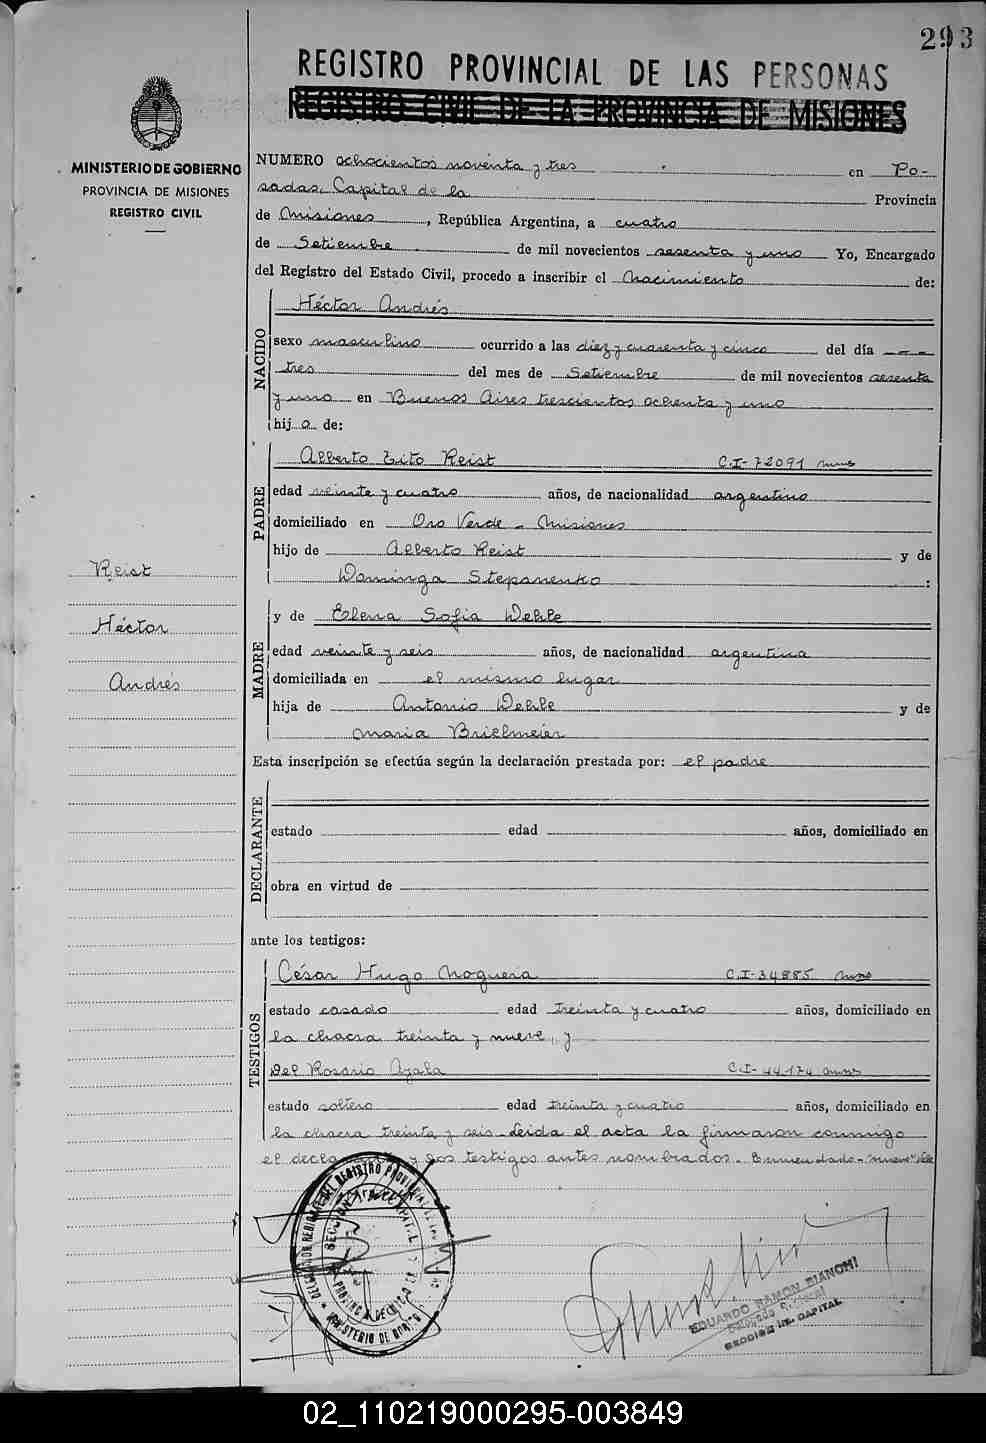 293
REGISTRO PROVINCIAL DE LAS PERSONAS
REGISTRO CIVIL DE LA PROVINCIA DE MISIONES
MINISTERIO DE GOBIERNO
PROVINCIA DE MISIONES
REGISTRO CIVIL
NUMERO ochocientos noventa y tres en Po-
sadas, Capital de la Provincia
de Misiones, República Argentina, a cuatro
de Setiembre de mil novecientos sesenta y uno Yo, Encargado
del Registro del Estado Civil, procedo a inscribir el Nacimiento de:
NACIDO
Héctor Andrés
sexo masculino ocurrido a las diez y cuarenta y cinco del día ---
tres del mes de Setiembre de mil novecientos sesenta
y uno en Buenos Aires trescientos ochenta y uno
hijo de:
PADRE
Alberto Tito Reist C.I-72091 Mnes
edad veinte y cuatro años, de nacionalidad argentino
domiciliado en Oro Verde - Misiones
hijo de Alberto Reist y de
Dominga Stepanenko :
Reist
Héctor
Andrés
MADRE
y de Elena Sofia Wehle
edad veinte y seis años, de nacionalidad argentina
domiciliada en el mismo lugar
hija de Antonio Wehle y de
Maria Brielmeier
Esta inscripción se efectúa según la declaración prestada por: el padre
DECLARANTE
estado edad años, domiciliado en
obra en virtud de
ante los testigos:
TESTIGOS
César Hugo Noguera C.I-34885 Mnes
estado casado edad treinta y cuatro años, domiciliado en
la chacra treinta y nueve, y
Del Rosario Ayala C.I-44174 Mnes
estado soltero edad treinta y cuatro años, domiciliado en
la chacra treinta y seis - Leida el acta la firmaron conmigo
el declarante y los testigos antes nombrados. Enmendado - nueve - Vale
EDUARDO RAMON BIANCHI
SECCION 1a. CAPITAL
02_110219000295-003849